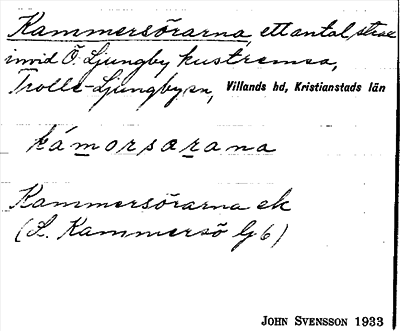 Kammersörarna, ett antal skär
invid Ö. Ljungby kustremsa,
Trolle-Ljungby sn, Villands hd, Kristianstads län
kámorsorana
Kammersörarna ek
(L. Kammersö G 6)
JOHN SVENSSON 1933